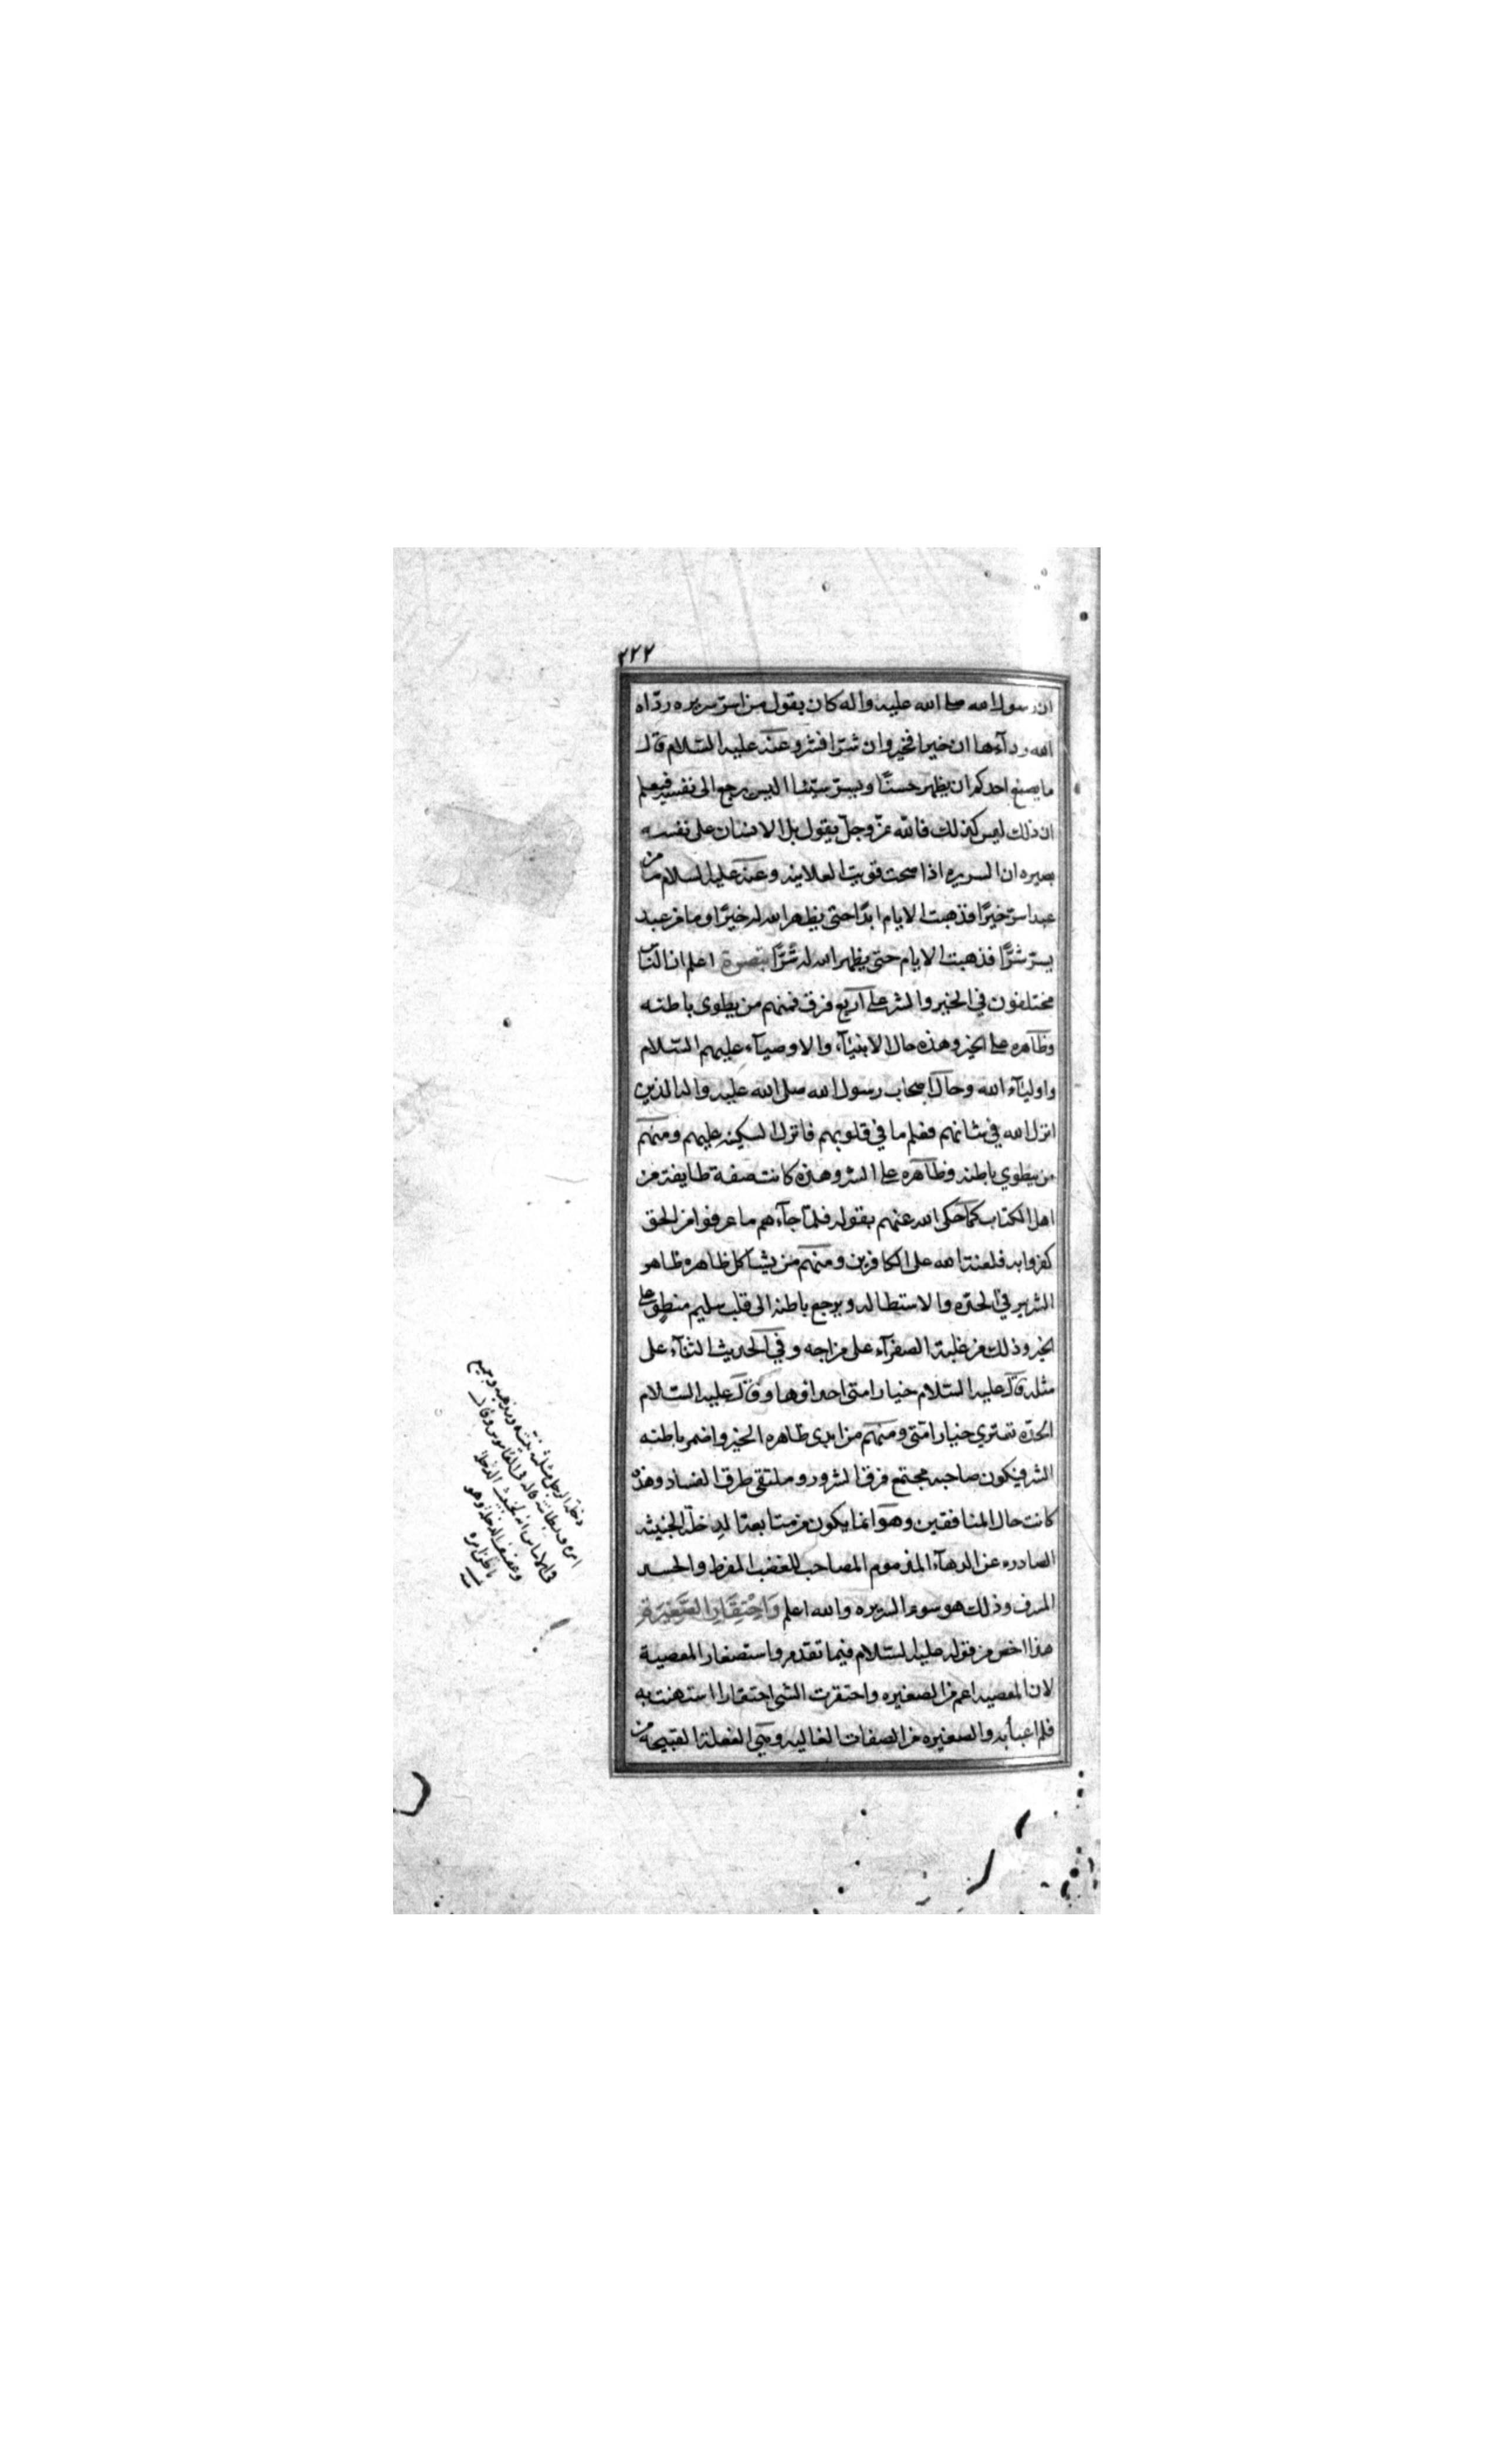 ٢٢٢
ان رسول الله صلى الله عليه واله كان يقول من اسرّ سريره ردّاه
الله ردآءها ان خيرا فخير وان شرّا فشر وعنه عليه السّلام قال
ما يصنع احدكم ان يظهر حسنًا ويسرّ سيّئا اليس يرجع الى نفسه فيعلم
ان ذلك ليس كذلك فالله عزّ وجلّ يقول بل الانسان على نفسه
بصيره ان السريره اذا صحت قويت العلانيه وعنه عليه السلام ما من
عبد اسرّ خيرًا فذهبت الايام ابدًا حتى يظهر الله له خيرًا وما من عبد
يسرّ شرًّا فذهبت الايام حتى يظهر الله له شرًّا تبصرة اعلم ان النّاس
مختلفون في الخير والشر على اربع فرق فمنهم من يطوى باطنه
وظاهره على الخير وهذه حال الانبيآء والاوصيآء عليهم السّلام
واوليآء الله وحال اصحاب رسول الله صلى الله عليه واله الذين
انزل الله في شانهم فعلم ما في قلوبهم فانزل السكينه عليهم ومنهم
من يطوي باطنه وظاهره على الشر وهذه كانت صفة طايفة من
اهل الكتاب كما حكى الله عنهم بقوله فلمّا جآءهم ما عرفوا من الحق
كفروا به فلعنة الله على الكافرين ومنهم من يشاكل ظاهره ظاهر
الشرير في الحدّه والاستطاله ويرجع باطنه الى قلب سليم منطوٍ على
الخير وذلك من غلبة الصفرآء على مزاجه وفي الحديث الثنآء على
مثله قال عليه السّلام خيار امتى احداؤها وقال عليه السّلام
الحدّه تعتري خيار امّتى ومنهم من ابدى ظاهره الخير واضمر باطنه
الشر فيكون صاحبه مجتمع فرق الشرور وملتقى طرق الفساد وهذه
كانت حال المنافقين وهو انما يكون من متابعة الدخلة الخبيثه
الصادره عن الدهآء المذموم المصاحب للغضب المفرط والحسد
المسرف وذلك هو سوء السريره والله اعلم وَاحْتِقَارِ الصَّغِيْرَةِ
هذا اخص من قوله عليه السّلام فيما تقدم واستصغار المعصية
لان المعصيه اعم من الصغيره واحتقرت الشي احتقارا استهنت به
فلم اعبأ به والصغيره من الصفات الغالبه وهي الفعلة القبيحه من
دخلة الرجل مثلثة نيته ومذهبه وجميع
امره وبطانته قاله في القاموس وقال
في الاساس انه لخبيث الدخلة
وعفيف الدخلة وهو
باطن امره